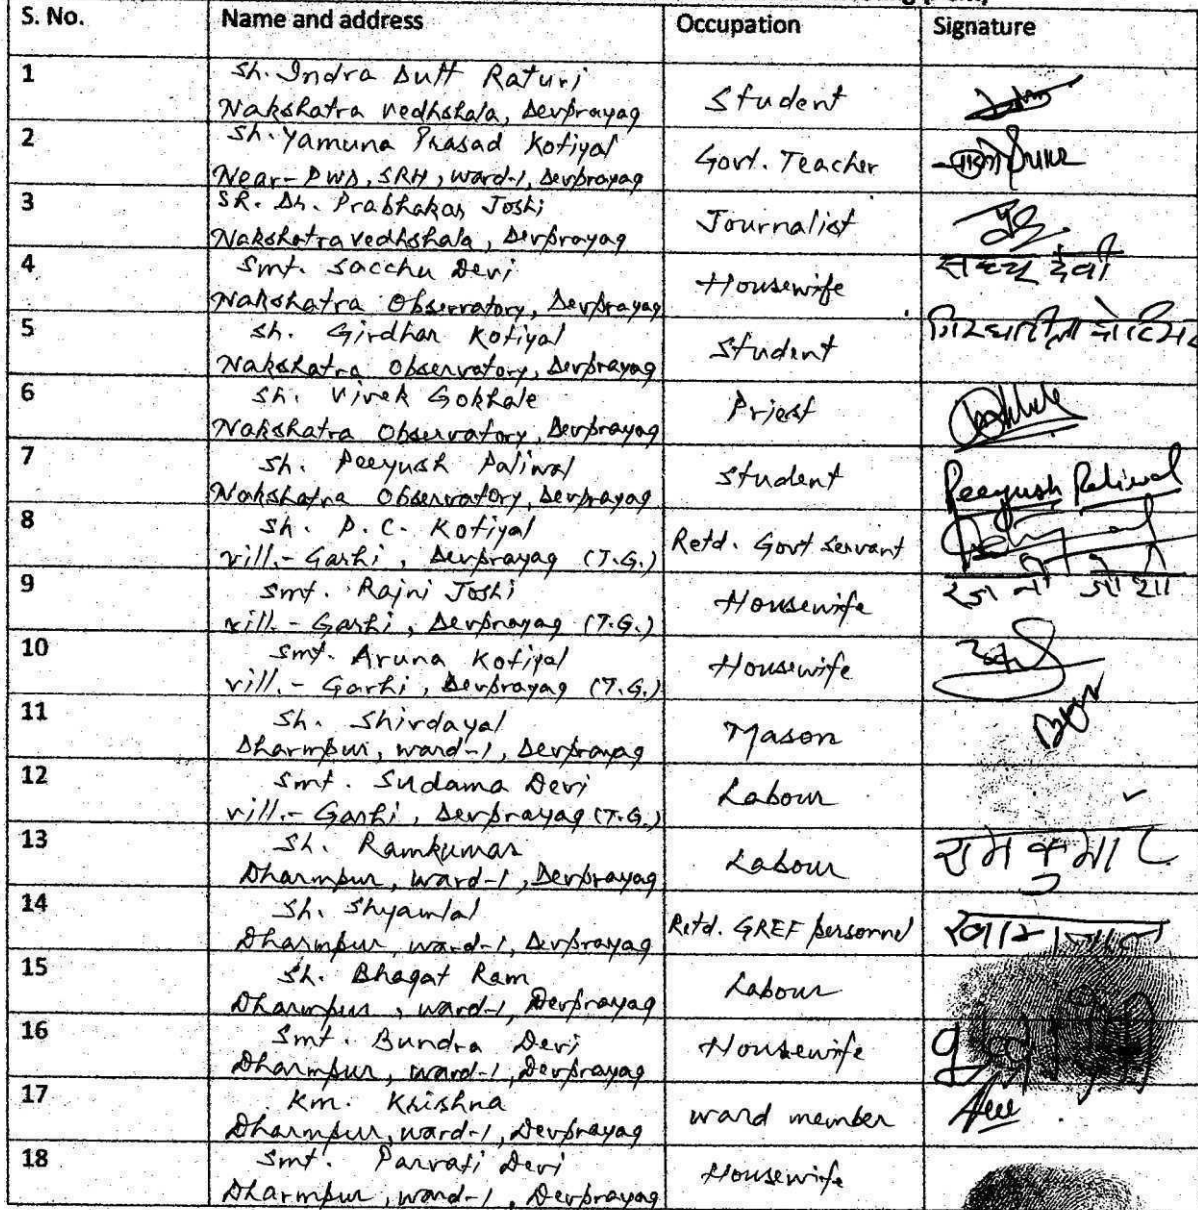 S. No. Name and address Occupation Signature
1 Sh. Indra Dutt Raturi
Nakshatra vedhshala, Devprayag Student
2 Sh. Yamuna Prasad Kotiyal
Near-PWD, SRH, ward-1, Devprayag Govt. Teacher
3 Sh. Dr. Prabhakar Joshi
Nakshatravedhshala, Devprayag Journalist
4 Smt. Sacchu Devi
Nakshatra Observatory, Devprayag Housewife सच्चू देवी
5 Sh. Girdhar Kotiyal
Nakshatra Observatory, Devprayag Student
6 Sh. Vivek Gokhale
Nakshatra Observatory, Devprayag Priest
7 Sh. Peeyush Paliwal
Nakshatra Observatory, Devprayag Student Peeyush Paliwal
8 Sh. P. C. Kotiyal
vill.- Garhi, Devprayag (T.G.) Retd. Govt Servant
9 Smt. Rajni Joshi
vill.- Garhi, Devprayag (T.G.) Housewife रजनी जोशी
10 Smt. Aruna Kotiyal
vill.- Garhi, Devprayag (T.G.) Housewife
11 Sh. Shivdayal
Dharmpur, ward-1, Devprayag Mason
12 Smt. Sudama Devi
vill.- Garhi, Devprayag (T.G.) Labour
13 Sh. Ramkumar
Dharmpur, ward-1, Devprayag Labour रामकुमार
14 Sh. Shyamlal
Dharmpur, ward-1, Devprayag Retd. GREF personnel
15 Sh. Bhagat Ram
Dharmpur, ward-1, Devprayag Labour
16 Smt. Bundra Devi
Dharmpur, ward-1, Devprayag Housewife
17 Km. Krishna
Dharmpur, ward-1, Devprayag ward member
18 Smt. Parvati Devi
Dharmpur, ward-1, Devprayag Housewife